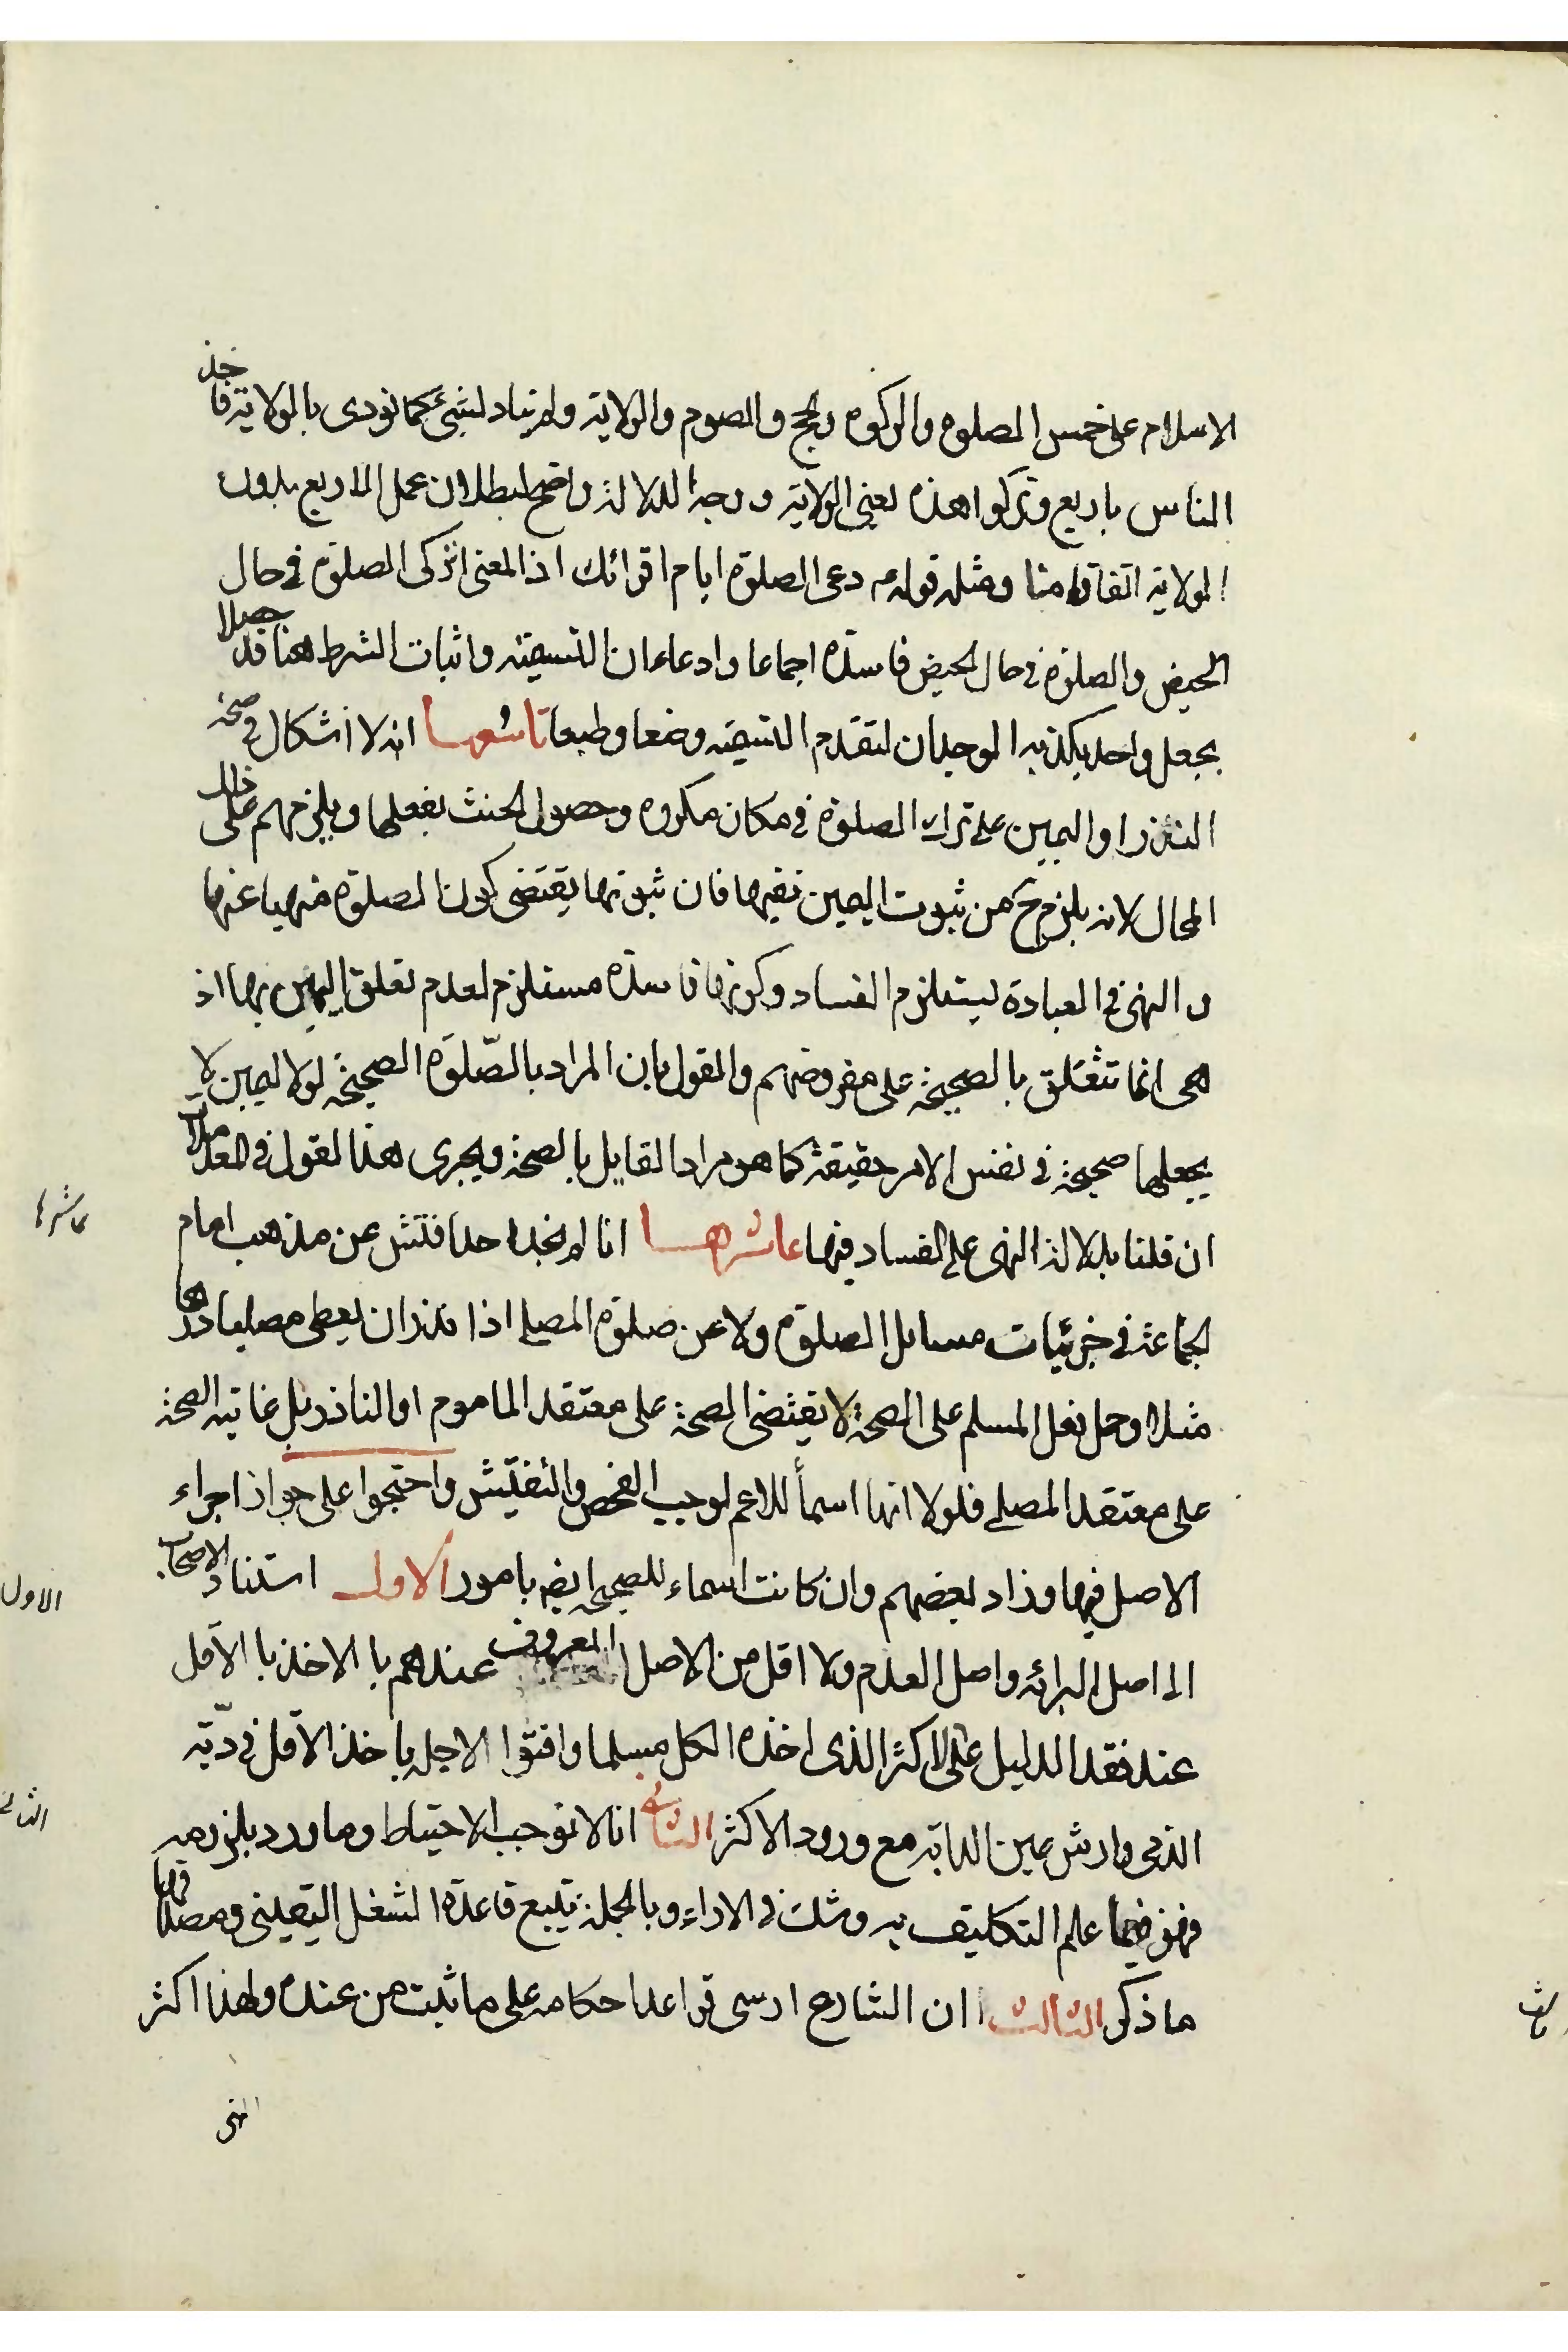 الاسلام على خمس الصلوة والزكوة والحج والصوم والولاية ولم يناد لشئ كما نودى بالولاية فاخذ
الناس باربع وتركوا هذه يعنى الولاية ووجه الدلالة واضح لبطلان عمل الاربع بدون
الولاية اتفاقا منا ومثله قوله ع دعى الصلوة ايام اقرائك اذ المعنى اتركى الصلوة فى حال
الحيض والصلوة فى حال الحيض فاسدة اجماعا وادعاء ان التسمية واثبات الشرط هنا قد حصلا
بجعل واحد يكذبه الوجدان لتقدم التسمية وضعا وطبعا تاسعها انه لا اشكال فى صحة
النذر او اليمين على ترك الصلوة فى مكان مكروه وحصول الحنث بفعلها ويلزمهم على ذلك
المحال لانه يلزم ح من ثبوت اليمين نفيها فان ثبوتها يقتضى كون الصلوة منهيا عنها
و النهى فى العبادة يستلزم الفساد وكونها فاسدة مستلزم لعدم تعلق اليمين بها اذ
هى انما تتعلق بالصحيحة على مفروضهم والقول بان المراد بالصّلوة الصحيحة لولا اليمين لا
يجعلها صحيحة فى نفس الامر حقيقة كما هو مراد القايل بالصحة ويجرى هذا القول فى المعاملات
ان قلنا بدلالة النهى على الفساد فيها عاشرها انا لم نجد احدا فتش عن مذهب امام
عاشرها
الجماعة فى جزئيات مسايل الصلوة ولا عن صلوة المصلى اذا نذر ان يعطى مصليا درهما
مثلا وحمل فعل المسلم على الصحة لا يقتضى الصحة على معتقد الماموم او الناذر بل غايته الصحة
على معتقد المصلى فلولا انها اسمأ للاعم لوجب الفحص والتفتيش واحتجوا على جواز اجراء
الاصل فيها وزاد بعضهم وان كانت اسماء للصحيح ايضا بامور الاول استناد الاصحاب
الاول
الى اصل البرائه واصل العدم ولا اقل من الاصل المعروف عندهم با الاخذ با الاقل
عند فقد الدليل على الاكثر الذى اخذه الكل مسلما وافتوا لاجله باخذ الاقل فى ديّة
الذمى وارش عين الدابة مع ورود الاكثر الثانى انا لا نوجب الاحتياط وما ورد بلزومه
الثانى
فهو فيما علم التكليف به وشك فى الاداء وبالجملة نتبع قاعدة الشغل اليقينى ومصداقها
ما ذكر الثالث ان الشارع ارسى قواعد احكامه على ما ثبت من عنده ولهذا اكثر
الثالث